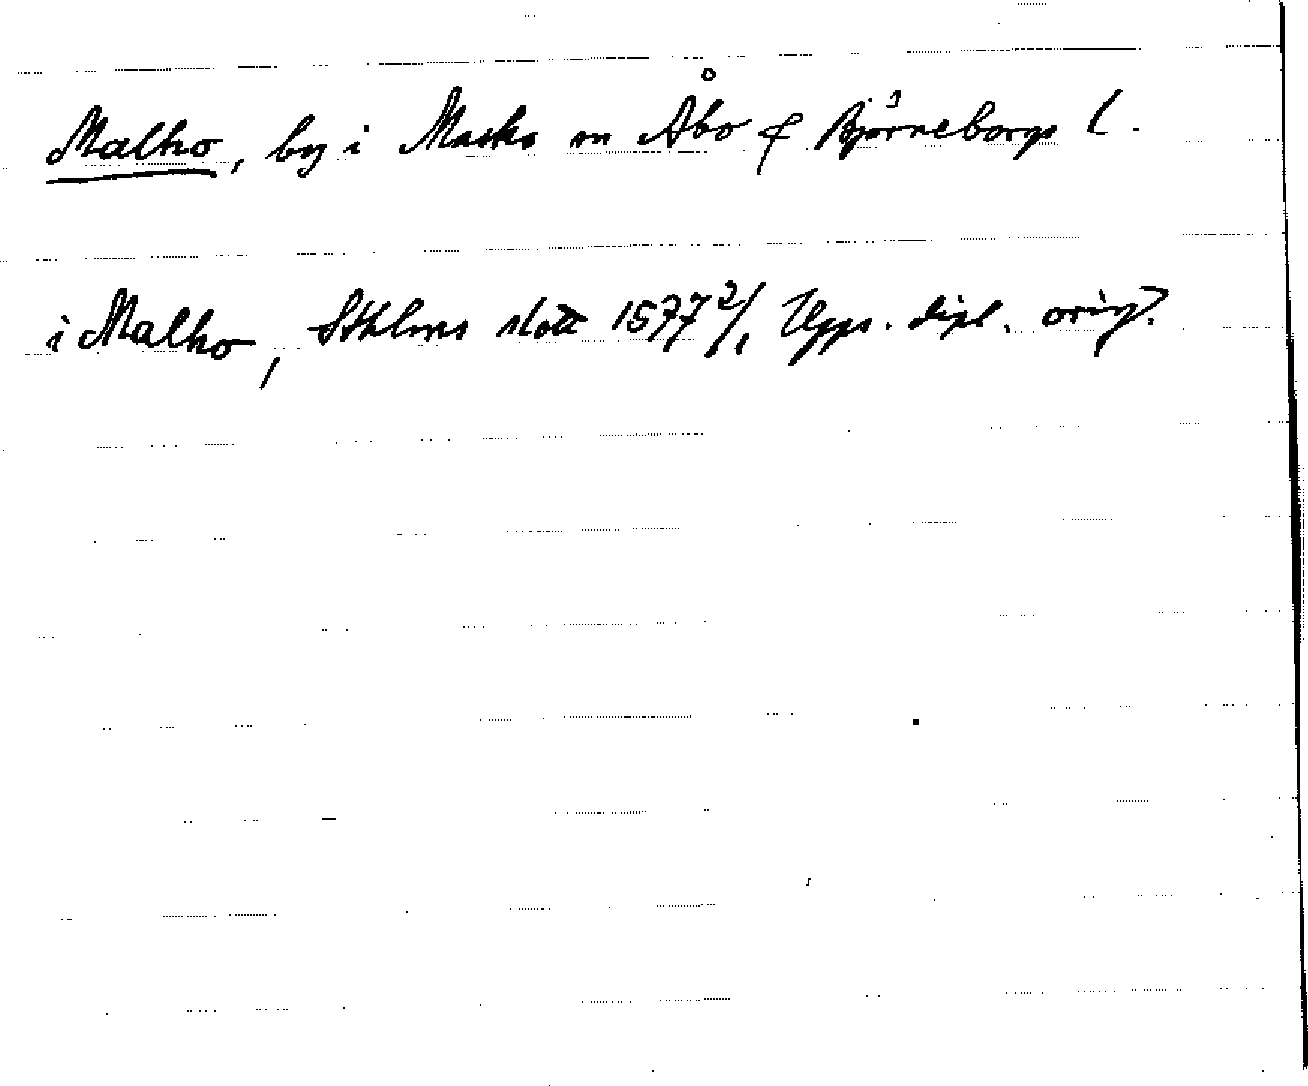 Malho, by i Masko sn Åbo & Björneborgs l.
i Malho, Sthlms slott 1577 2/1, Upps. dipl. orig.